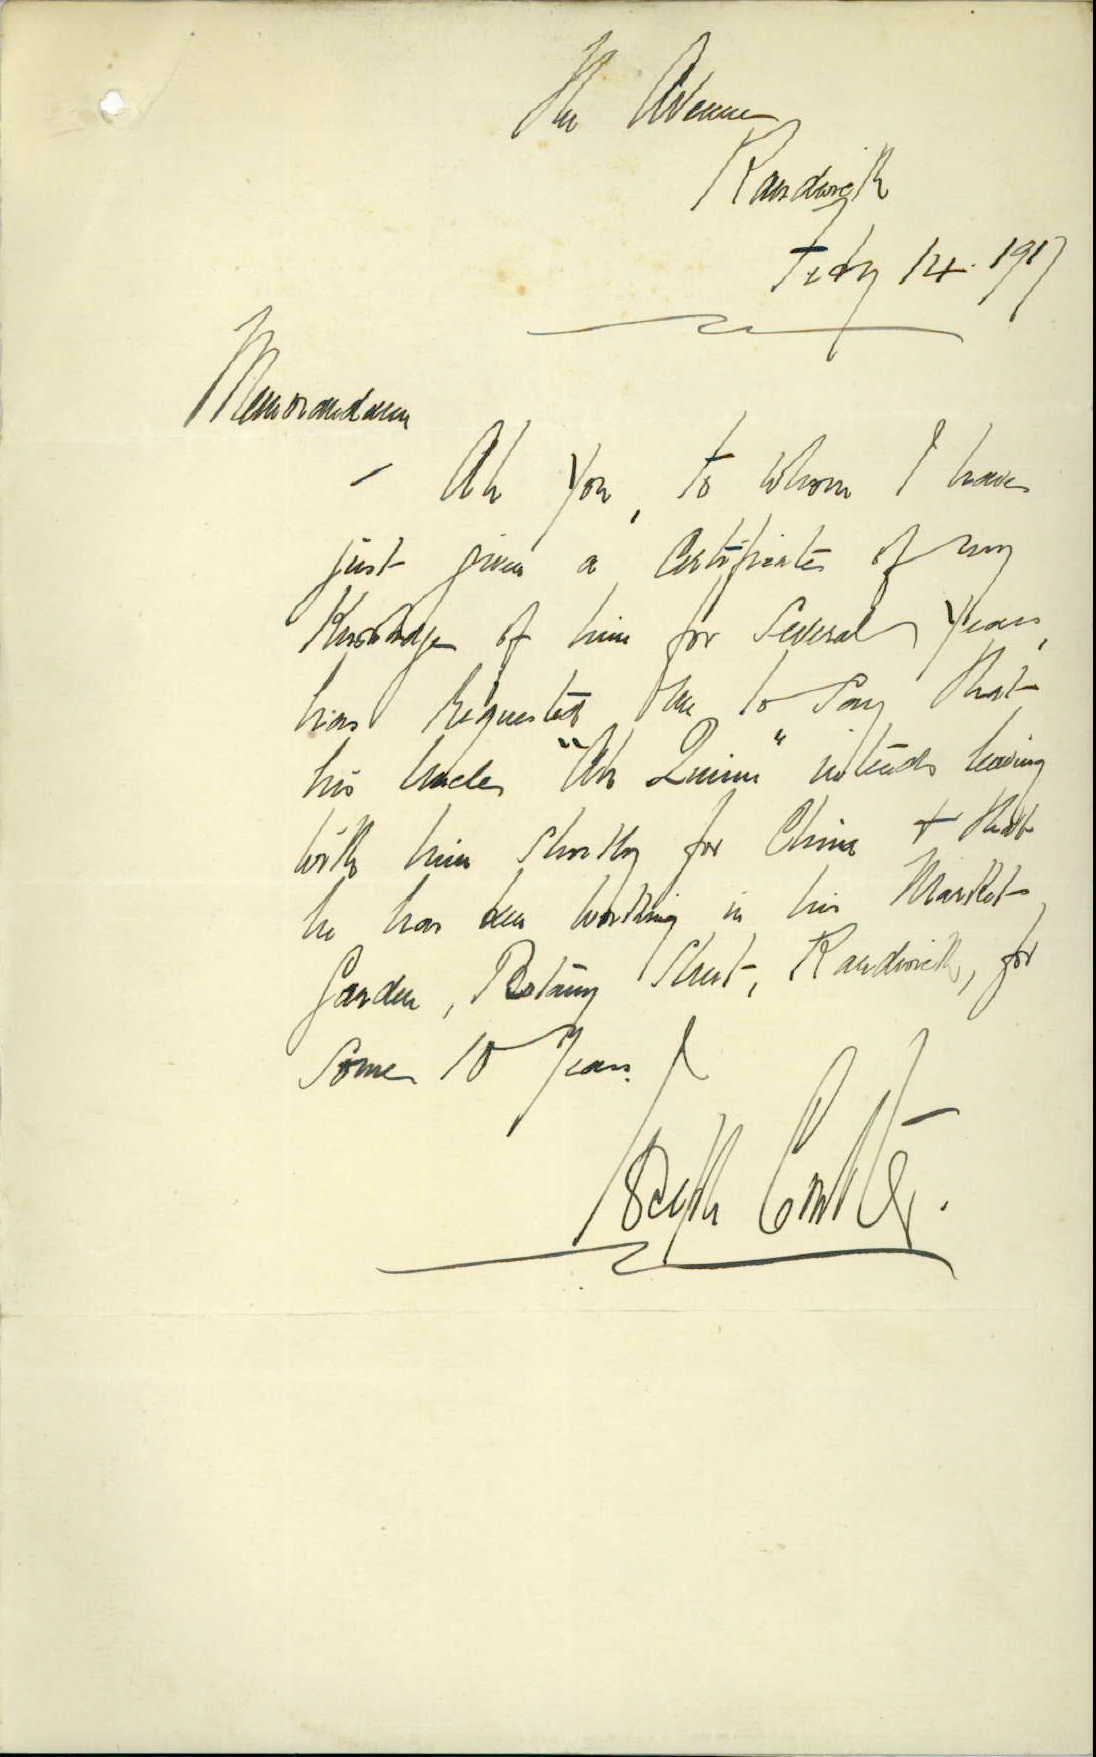 The Avenue
Randwick
Feby 14. 1917
Memorandum
- Ah You, to whom I have
just given a Certificate of my
Knowledge of him for several years,
has requested me to say that
his Uncle, "Ah Quinn" intends leaving
with him shortly for China & that
he has been working in his Market
Garden, Botany Street, Randwick, for
some 10 years.
Joseph